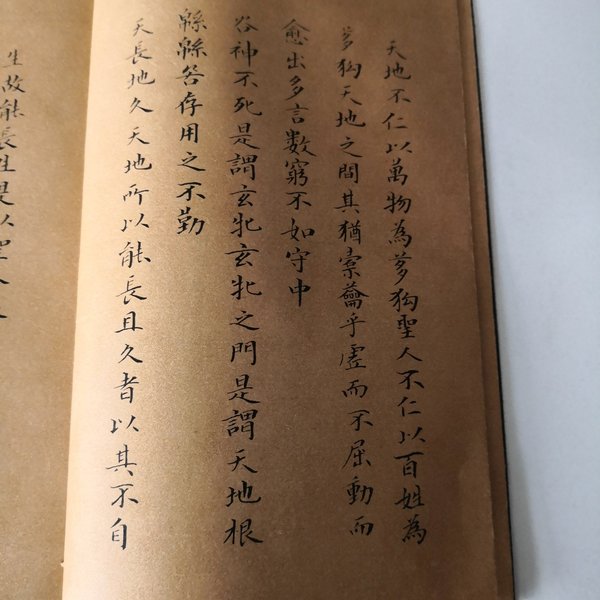 天地不仁以萬物為芻狗聖人不仁以百姓為
芻狗天地之間其猶橐籥乎虛而不屈動而
愈出多言數窮不如守中
谷神不死是謂玄牝玄牝之門是謂天地根
緜緜若存用之不勤
天長地久天地所以能長且久者以其不自
生故能長生是以聖人